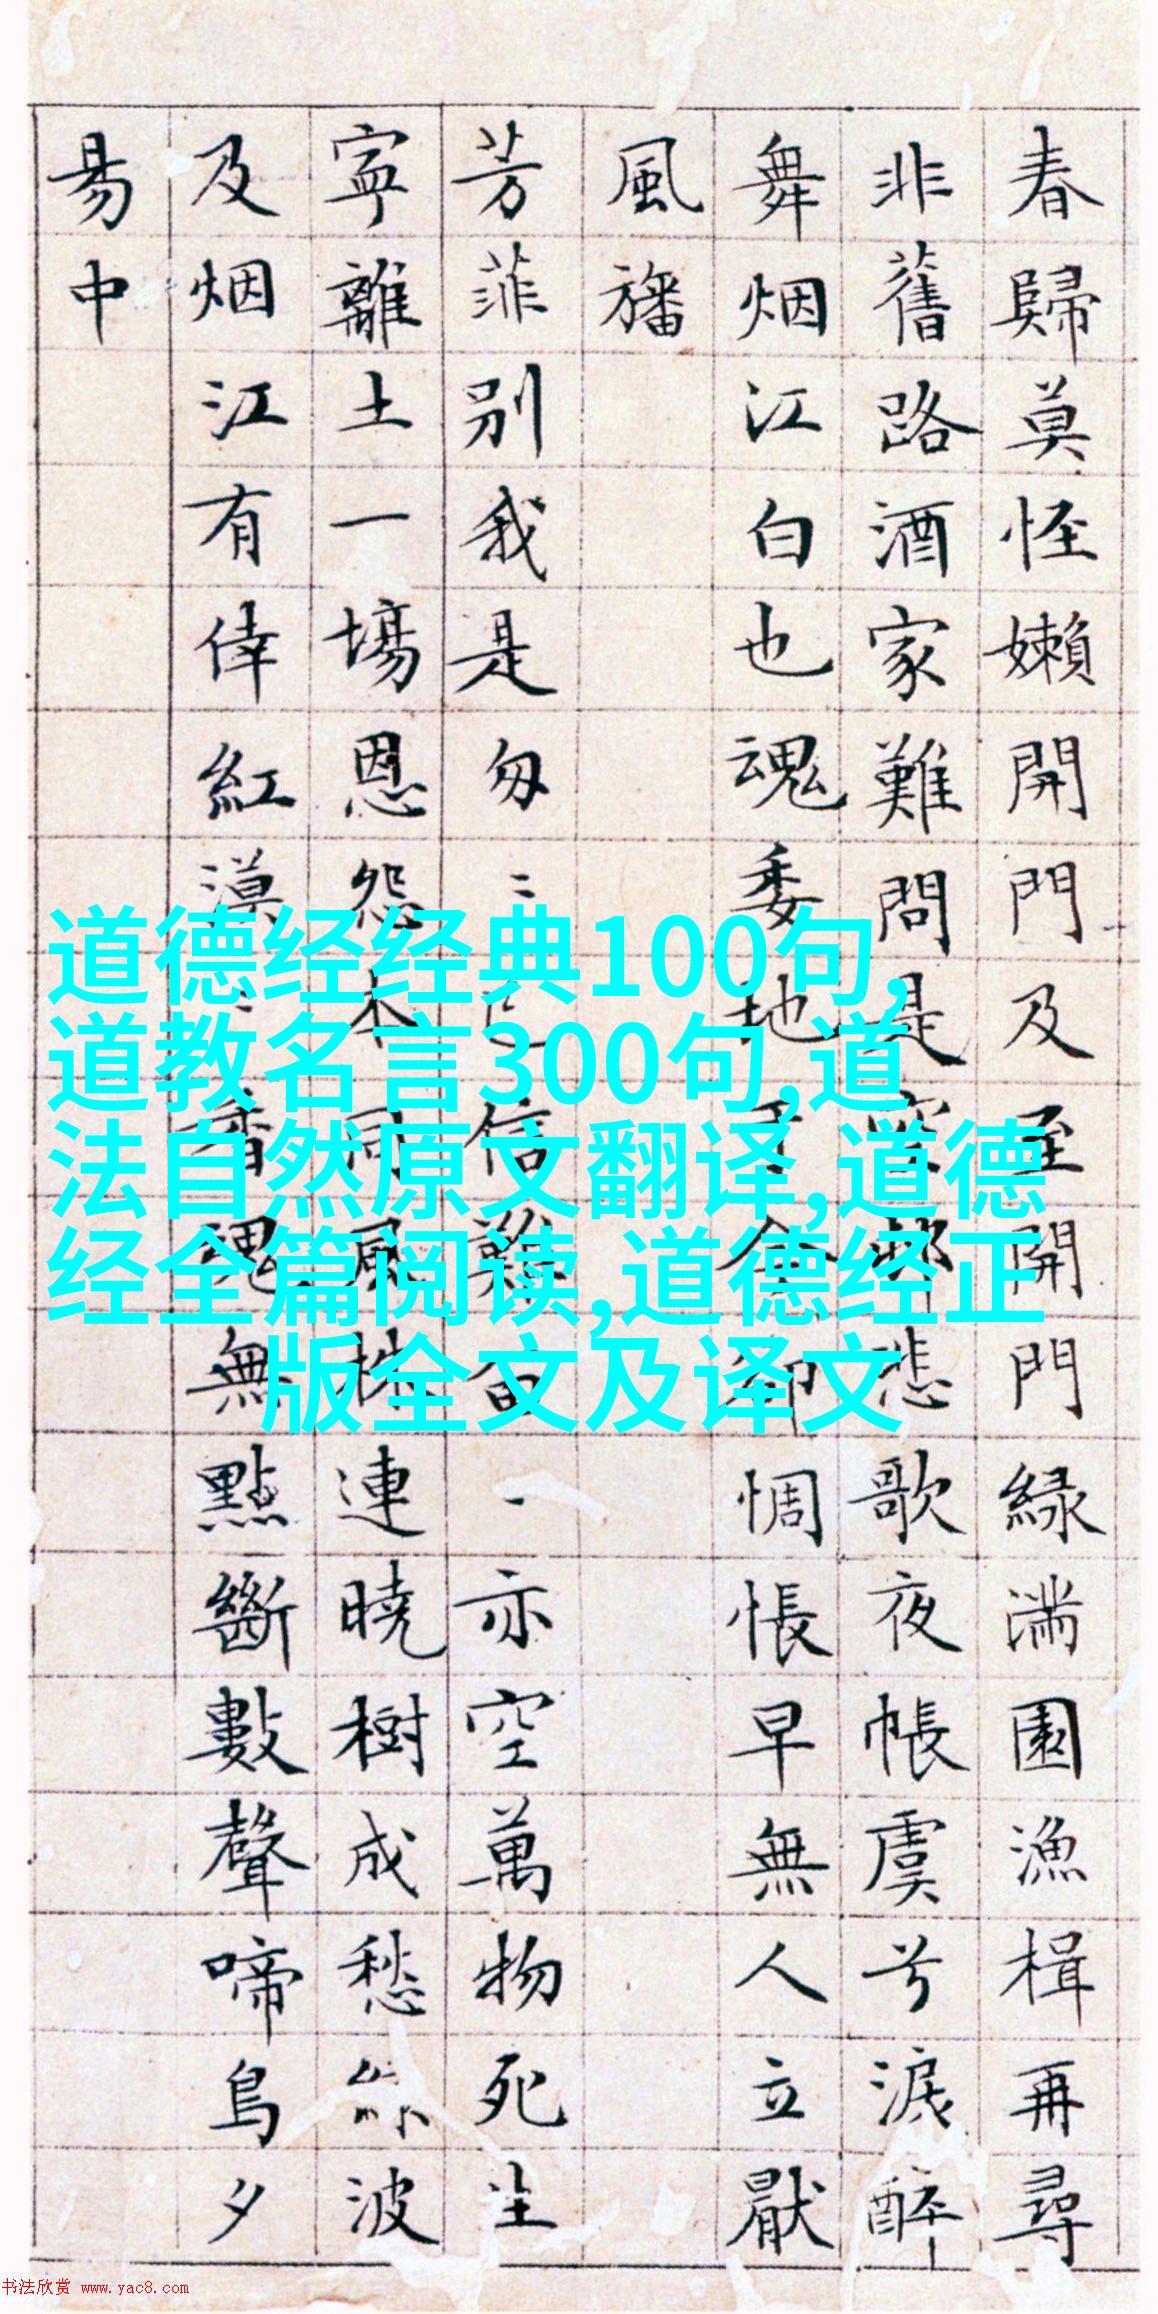 春歸莫怪嬾開門及至開門緑滿園漁楫再尋
非舊路酒家難問是邨悲歌夜帳虞兮淚醉
舞烟江白也魂委地于今卻惆悵早無人立厭
風旛
芳菲別我是匆〻已信難留一亦空萬物死生
寧離土一場恩怨本同風株連曉樹成愁絲波
及烟江有倖紅漠〻香魂無點斷數聲啼鳥夕
昜中
道德经经典100句,
道教名言300句,道
法自然原文翻译,道德
经全篇阅读,道德经正
版全文及译文
书法欣赏 www.yac8.com